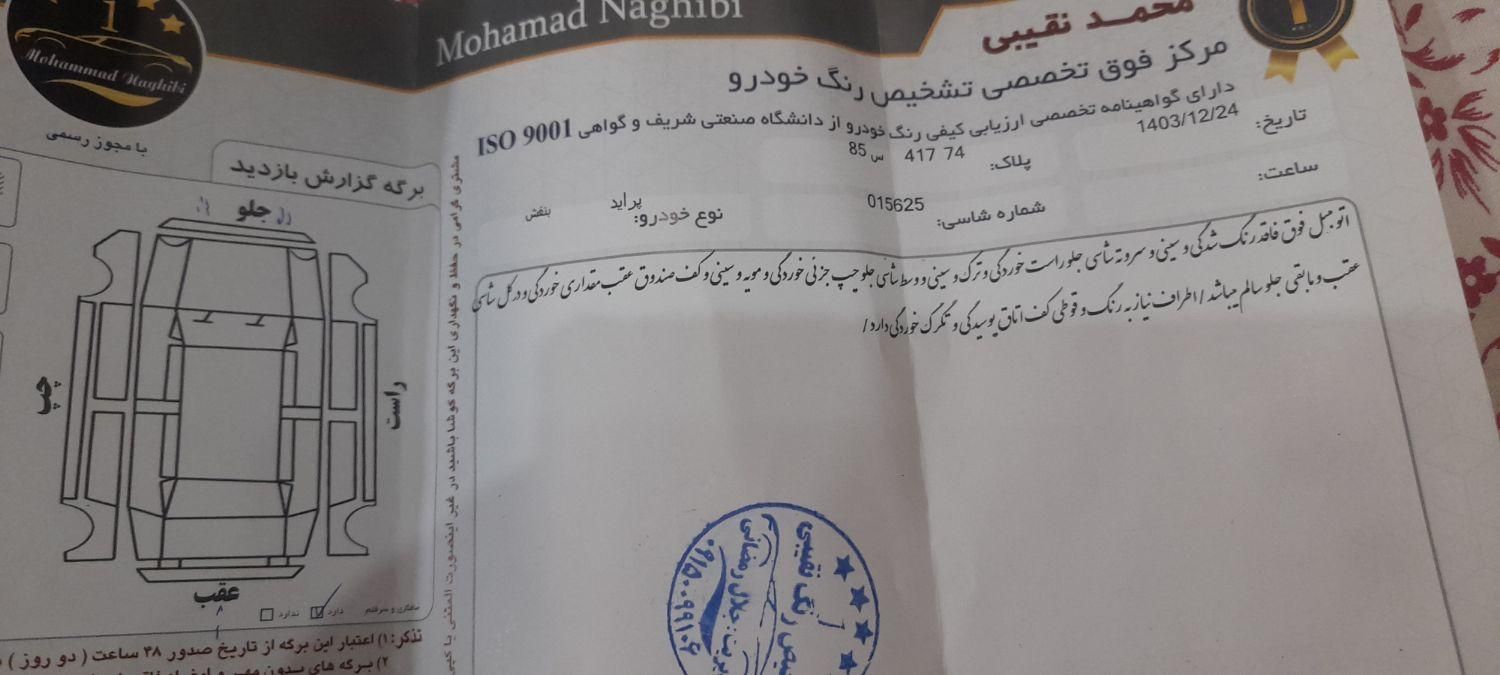 Mohamad Naghibi
محمد نقیبی
1
Mohammad Naghibi
با مجوز رسمی
مرکز فوق تخصصی تشخیص رنگ خودرو
دارای گواهینامه تخصصی ارزیابی کیفی رنگ خودرو از دانشگاه صنعتی شریف و گواهی ISO 9001
تاریخ: 1403/12/24
پلاک: 74 417 س 85
ساعت:
شماره شاسی: 015625
نوع خودرو: پراید بنفش
اتومبیل فوق فاقد رنگ شدگی و سینی و سرو ته شاسی جلو راست خوردگی و ترک و سینی و وسط شاسی جلو چپ جزئی خوردگی و مویه و سینی و کف صندوق عقب مقداری خوردگی و در کل شاسی
عقب و مابقی جلو سالم میباشد / اطراف نیاز به رنگ و قوطی کف اتاق پوسیدگی و تگرگ خوردگی دارد /
برگه گزارش بازدید
جلو
چپ
راست
عقب
دارد
ندارد
مشتری گرامی در حفظ و نگهداری این برگه کوشا باشید در غیر اینصورت المثنی یا کپی
تذکر: ۱) اعتبار این برگه از تاریخ صدور ۴۸ ساعت ( دو روز )
۲) برگه های بدون مهر و
رنگ نقیبی
جلال رمضانی